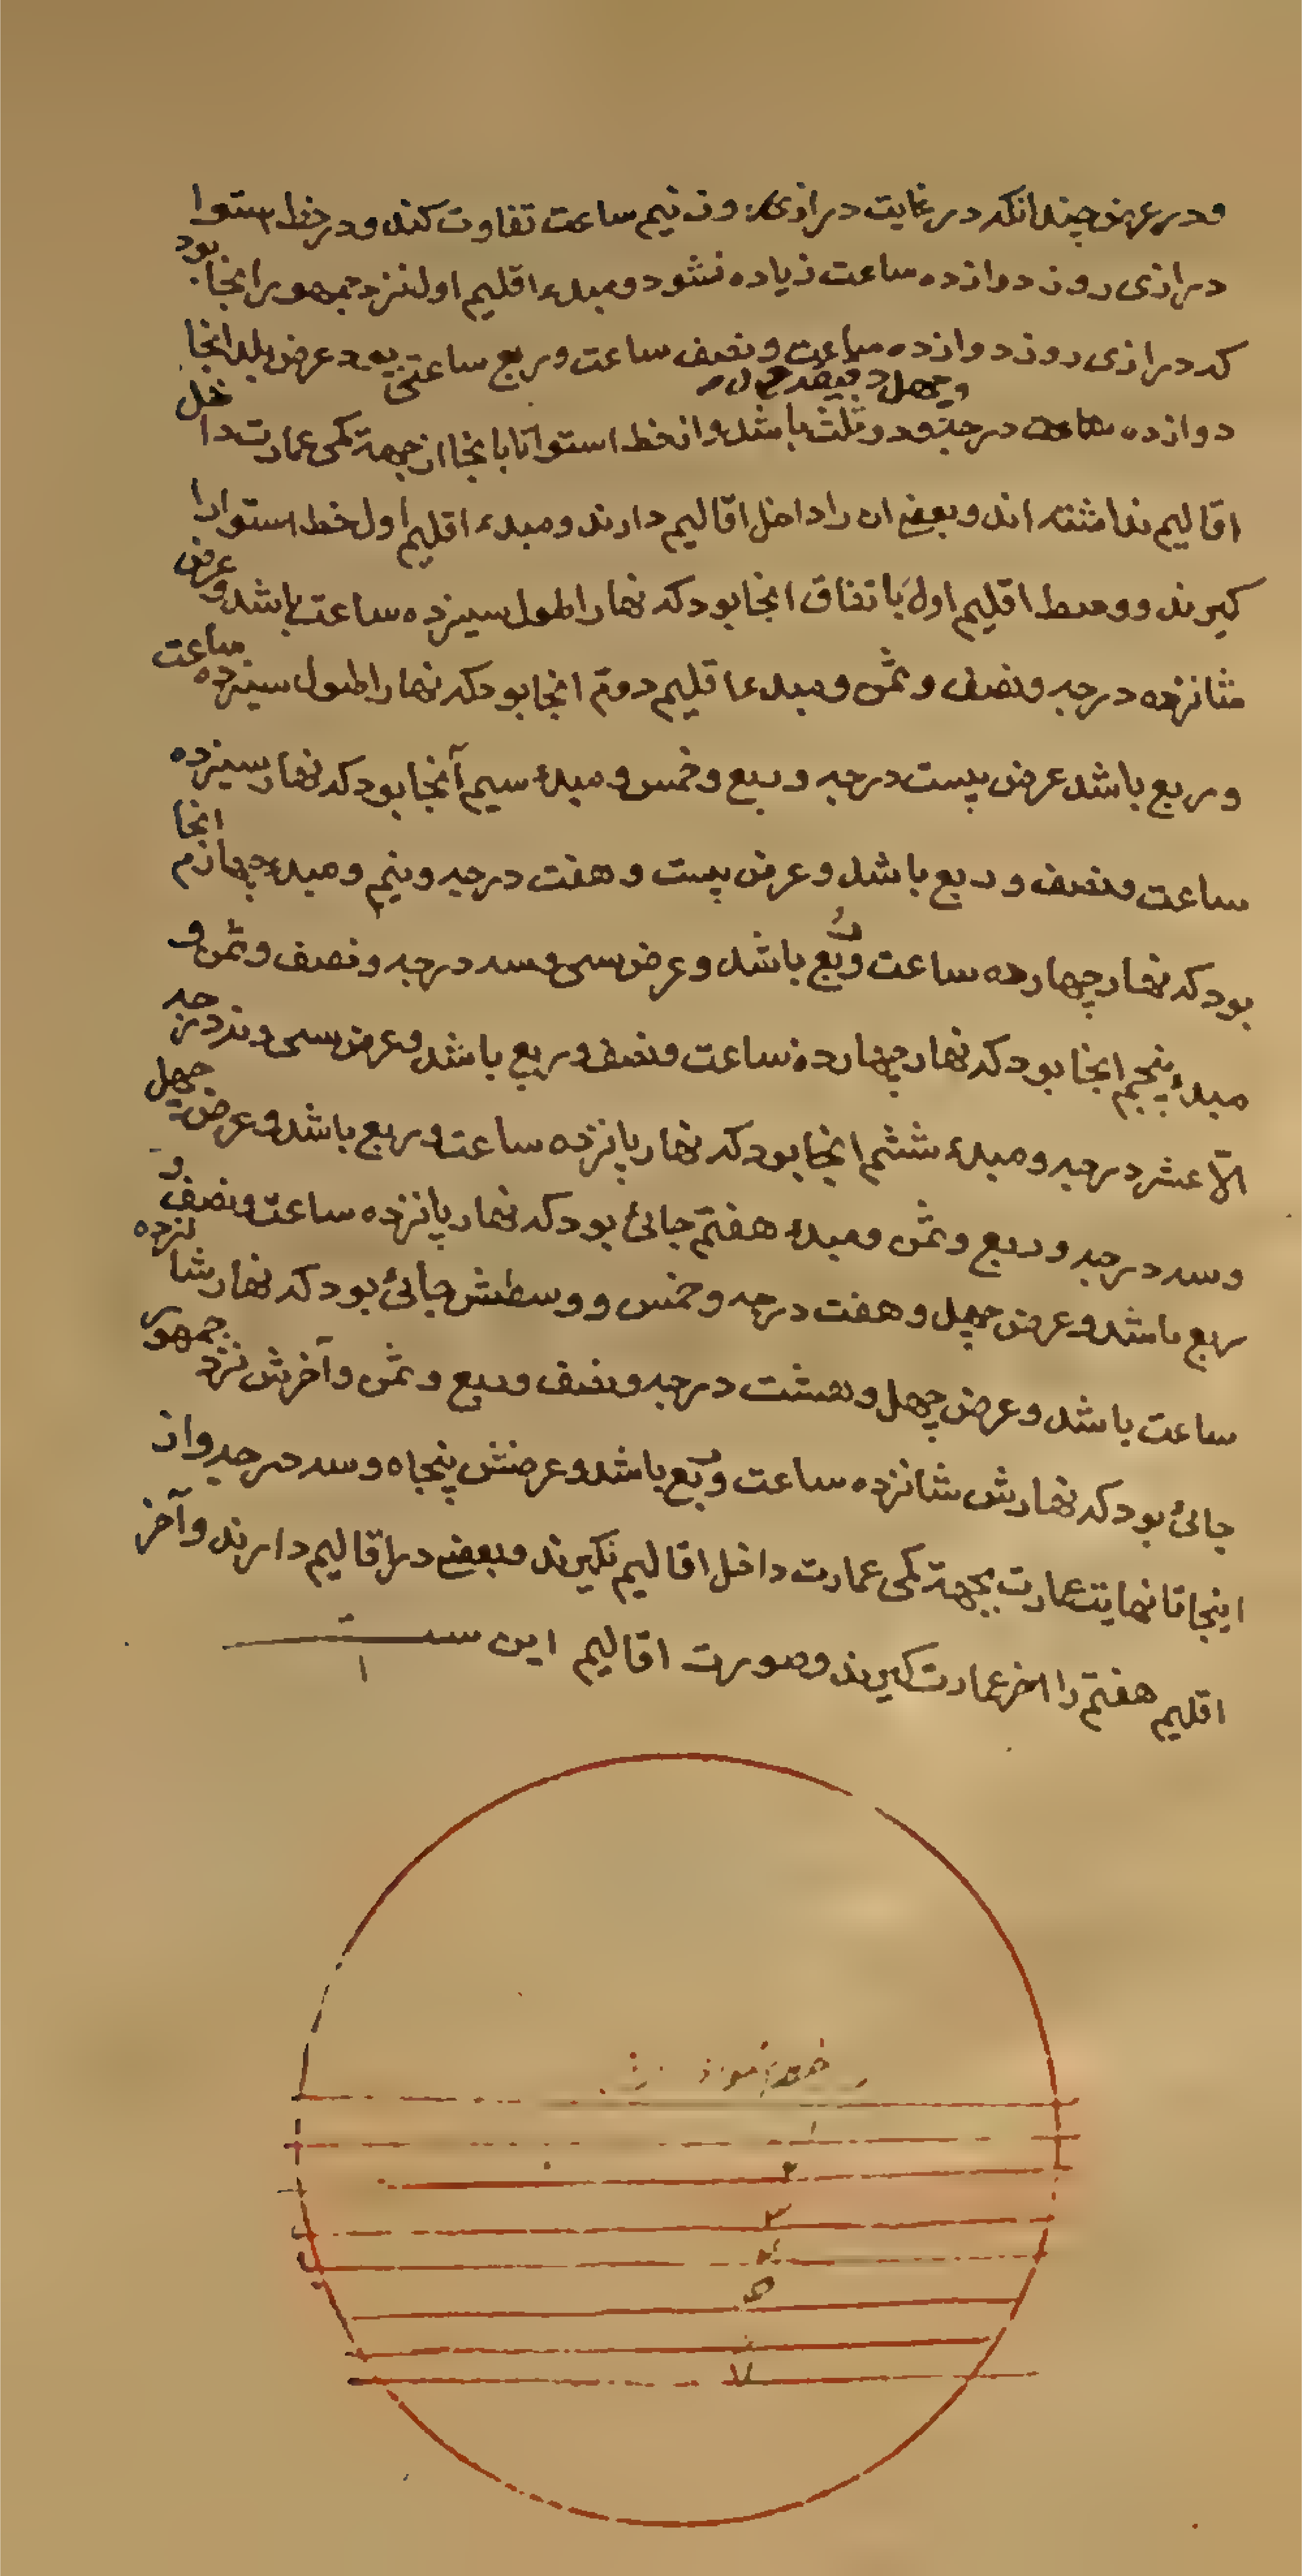 ودر عرض چندانکه در غایت درازی روز نیم ساعت تفاوت کند ودر خط استوا
درازی روز دوازده ساعت زیاده نشود ومبدء اقلیم اول نزد جمهور انجا بود
که درازی روز دوازده ساعت ونصف ساعت وربع ساعتی بود عرض بلد انجا
دوازده درجه ودو ثلث باشد واز خط استوا تا بانجا از جهة کمی عمارت داخل
اقالیم نداشته اند وبعضی ان را داخل اقالیم دارند ومبدء اقلیم اول خط استوا را
کیرند ووسط اقلیم اول باتفاق انجا بود که نهار اطول سیزده ساعت باشد وعرض
شانزده درجه ونصف وثمن ومبدء اقلیم دوم انجا بود که نهار اطول سیزده ساعت
وربع باشد عرض بیست درجه وربع وخمس ومبدء سیم آنجا بود که نهار سیزده
ساعت ونصف وربع باشد وعرض بیست وهفت درجه ونیم ومبدء چهارم انجا
بود که نهار چهارده ساعت وربع باشد وعرض سی وسه درجه ونصف وثمن و
مبدء پنجم انجا بود که نهار چهارده ساعت ونصف وربع باشد وعرض سی ونه درجه
الّا عشر درجه ومبدء ششم انجا بود که نهار پانزده ساعت وربع باشد وعرض چهل
وسه درجه وربع وثمن ومبدء هفتم جائی بود که نهار پانزده ساعت ونصف و
ربع باشد وعرض چهل وهفت درجه وخمس ووسطش جائی بود که نهار شانزده
ساعت باشد وعرض چهل وهشت درجه ونصف وربع وثمن وآخرش نزد جمهور
جائی بود که نهارش شانزده ساعت وربع باشد وعرضش پنجاه وسه درجه واز
اینجا تا نهایت عمارت بجهة کمی عمارت داخل اقالیم نکیرند وبعضی در اقالیم دارند وآخر
اقلیم هفتم را اخر عمارت کیرند وصورت اقالیم این ست
۲
۳
۴
۵
۷